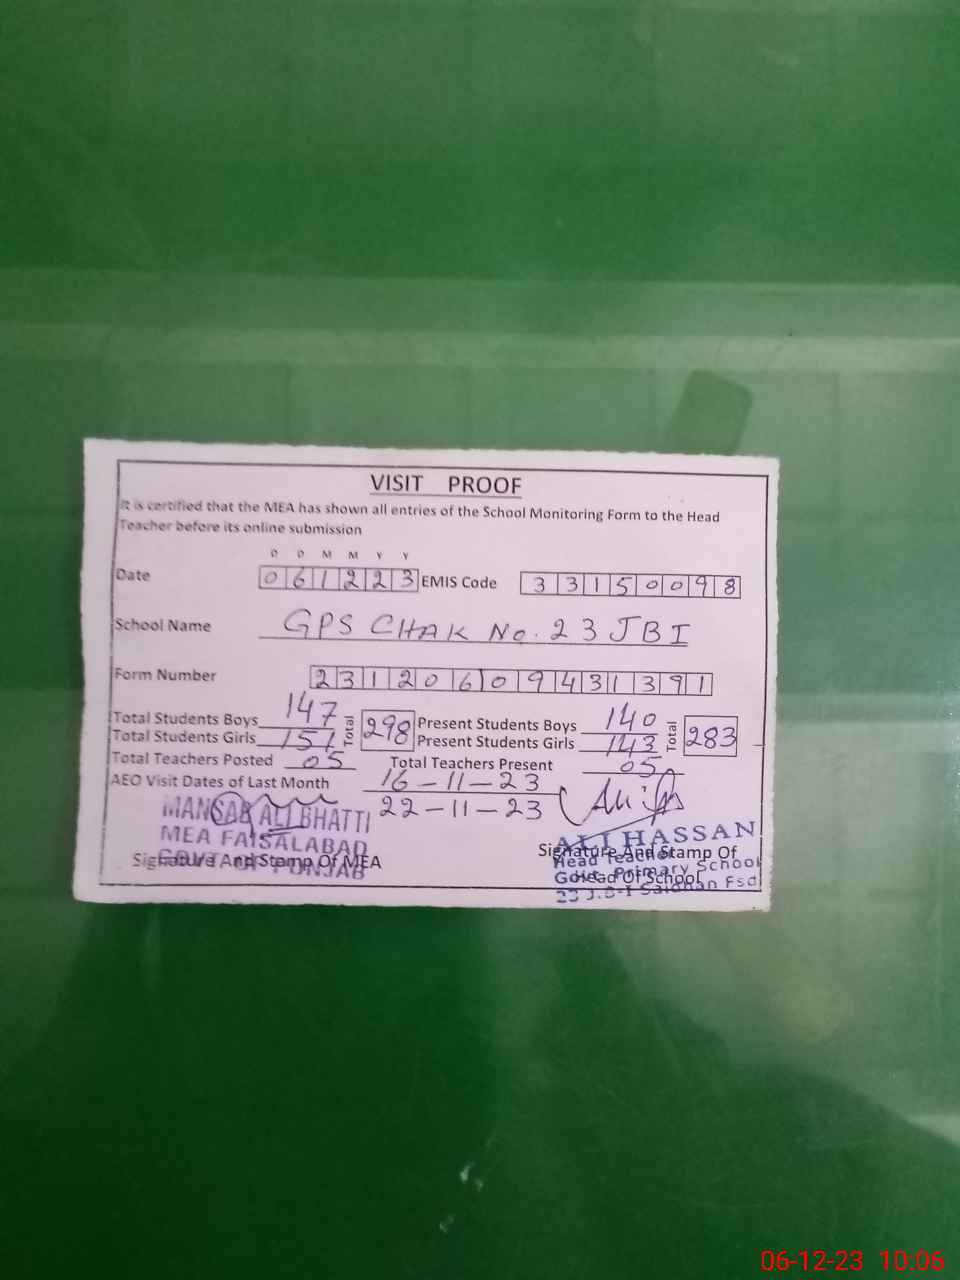 VISIT PROOF
It is certified that the MEA has shown all entries of the School Monitoring Form to the Head
Teacher before its online submission
D D M M Y Y
Date 061223 EMIS Code 33150098
School Name GPS CHAK No. 23 JBI
Form Number 23120609431391
Total Students Boys 147 Total 298 Present Students Boys 140 Total 283
Total Students Girls 151 Present Students Girls 143
Total Teachers Posted 05 Total Teachers Present 05
AEO Visit Dates of Last Month 16-11-23
22-11-23
MANSAB ALI BHATTI
MEA FAISALABAD
GOVT OF PUNJAB
Signature And Stamp Of MEA
ALI HASSAN
Signature And Stamp Of
Head Teacher
Govt. Primary School
Head Of School
23 J.B-I Fsd
06-12-23 10:06